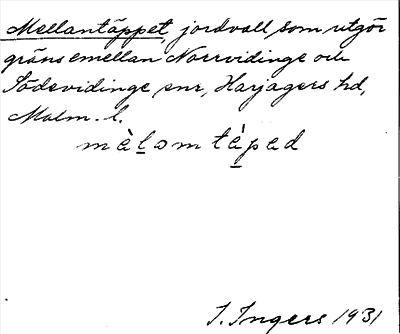 Mellantäppet, jordvall som utgör
gräns emellan Norrvidinge och
Södervidinge snr, Harjagers hd,
Malm. l.
mèləmtèpəd
I. Ingers 1931